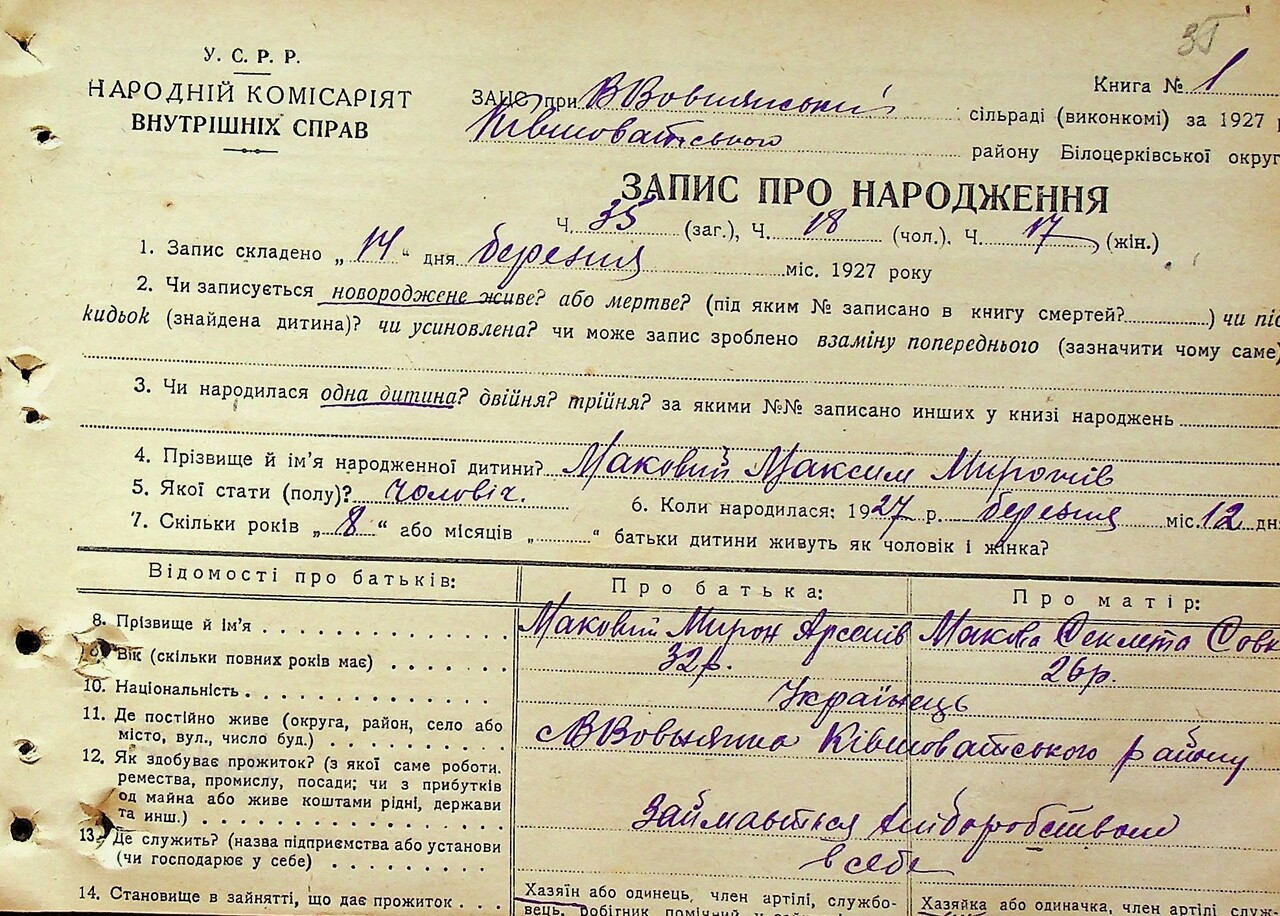 35
У. С. Р. Р.
НАРОДНІЙ КОМІСАРІЯТ
ВНУТРІШНІХ СПРАВ
Книга № 1
ЗАГС при ВВовнянський сільраді (виконкомі) за 1927 р
Ківшоватського району Білоцерківської округ
ЗАПИС ПРО НАРОДЖЕННЯ
Ч. 35 (заг.), Ч. 18 (чол.). Ч. 17 (жін.)
1. Запис складено „ 14 “ дня березня міс. 1927 року
2. Чи записується новороджене живе? або мертве? (під яким № записано в книгу смертей?) чи під
кидьок (знайдена дитина)? чи усиновлена? чи може запис зроблено взаміну попереднього (зазначити чому саме)
3. Чи народилася одна дитина? двійня? трійня? за якими №№ записано инших у книзі народжень
4. Прізвище й ім'я народженної дитини? Маковий Максим Миронів
5. Якої стати (полу)? чоловіч. 6. Коли народилася: 1927 р. березня міс. 12 дн
7. Скільки років „ 8 “ або місяців „ “ батьки дитини живуть як чоловік і жінка?
Відомості про батьків: Про батька: Про матір:
8. Прізвище й ім'я Маковий Мирон Арсенів Макова Секлета Совк
9. Вік (скільки повних років має) 32р. 26р.
10. Національність Українець
11. Де постійно живе (округа, район, село або
місто, вул., число буд.) ВВовнянка Ківшоватського району
12. Як здобуває прожиток? (з якої саме роботи.
ремества, промислу, посади; чи з прибутків
од майна або живе коштами рідні, держави
та инш.) Займається хліборобством
13. Де служить? (назва підприємства або установи
(чи господарює у себе) в себе
14. Становище в зайнятті, що дає прожиток
Хазяїн або одинець, член артілі, службо-
вець, робітник помічний у
Хазяйка або одиначка, член артілі, служ-